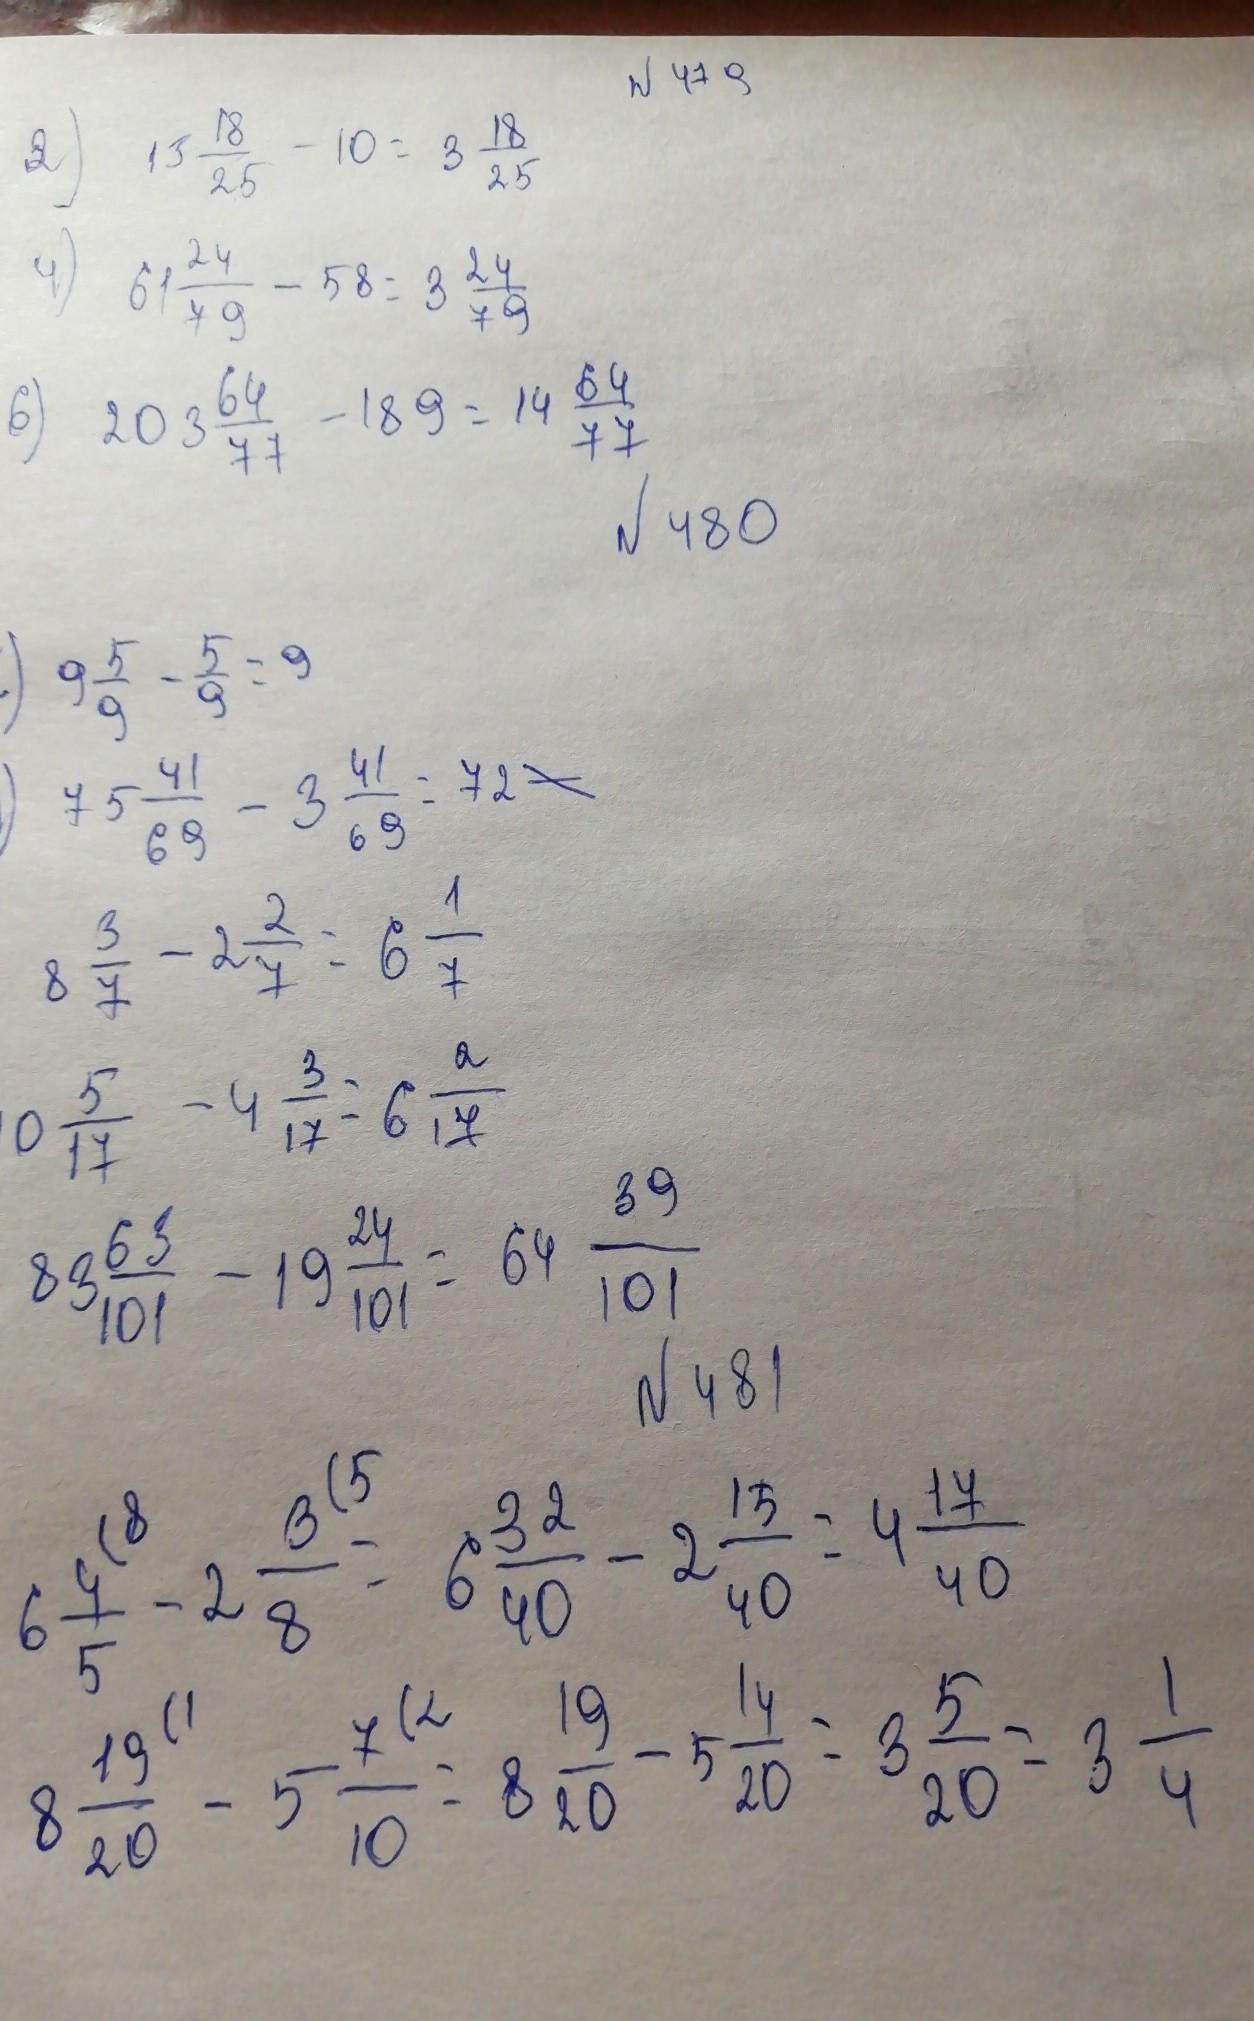 N 479
2) 13 18/25 - 10 = 3 18/25
4) 61 24/79 - 58 = 3 24/79
6) 203 64/77 - 189 = 14 64/77
N 480
) 9 5/9 - 5/9 = 9
) 75 41/69 - 3 41/69 = 72
8 3/7 - 2 2/7 = 6 1/7
10 5/17 - 4 3/17 = 6 2/17
83 63/101 - 19 24/101 = 64 39/101
N 481
6 4/5 (8 - 2 3/8 (5 = 6 32/40 - 2 15/40 = 4 17/40
8 19/20 (1 - 5 7/10 (2 = 8 19/20 - 5 14/20 = 3 5/20 = 3 1/4